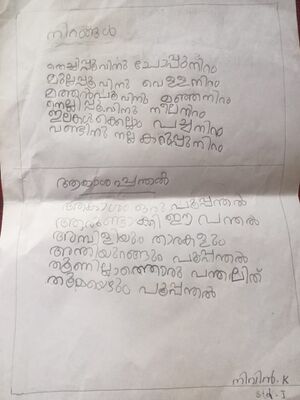 നിറങ്ങൾ
തെച്ചിപ്പൂവിനു ചോപ്പുനിറം
മുല്ലപ്പൂവിനു വെള്ളനിറം
മത്തൻപൂവിനു മഞ്ഞനിറം
നെല്ലിപ്പൂവിനു നീലനിറം
ഇലകൾക്കെല്ലാം പച്ചനിറം
വണ്ടിനു നല്ല കറുപ്പുനിറം
ആകാശപ്പന്തൽ
ആകാശം ഒരു പൂപ്പന്തൽ
ആരുണ്ടാക്കി ഈ പന്തൽ
അമ്പിളിയും താരകളും
അന്തിയുറങ്ങും പൂപ്പന്തൽ
തൂണില്ലാത്തൊരു പന്തലിത്
തന്മയെഴും പൂപ്പന്തൽ
നിവിൻ. K
std - I